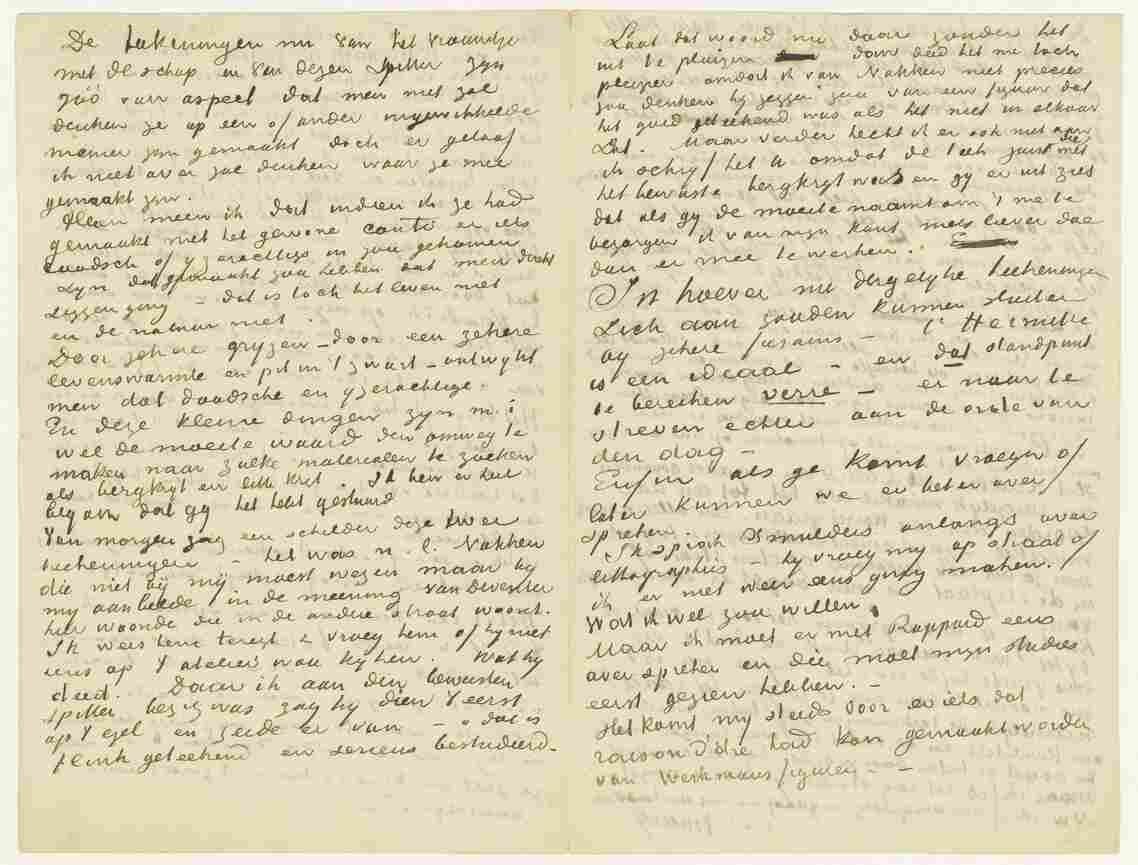 De teekeningen nu van het vrouwtje
met de schop en van dezen spitter zyn
zóó van aspect dat men niet zal
denken ze op een of ander ingewikkelde
manier zyn gemaakt doch er geloof
ik niet over zal denken waar ze mee
gemaakt zyn.
Alleen meen ik dat indien ik ze had
gemaakt met het gewone conté er iets
doodsch of yzerachtigs in zou gekomen
zyn dat gemaakt zou hebben dat men direkt
zeggen ging – dat is toch het leven niet
en de natuur niet.
Door zekere gryzen – door een zekere
levenswarmte en pit in 't zwart – ontwykt
men dat doodsche en yzerachtige.
En deze kleine dingen zyn m.i.
wel de moeite waard den omweg te
maken naar zulke materialen te zoeken
als bergkryt en lith. kryt. Ik ben er heel
bly om dat gy het hebt gestuurd
Van morgen zag een schilder deze twee
teekeningen – het was n.l. Nakken
die niet by my moest wezen maar by
my aanbelde in de meening van Deventer
hier woonde die in de andere straat woont.
Ik wees hem teregt & vroeg hem of hy niet
eens op 't atelier wou kyken. Wat hy
deed. Daar ik aan den bewusten
spitter bezig was zag hy dien 't eerst
op 't ezel en zeide er van – „dat is
flink geteekend en serieus bestudeerd –
Laat dat woord nu daar zonder het
uit te pluizen dan deed het me toch
pleizier omdat ik van Nakken niet precies
zou denken hy zeggen zou van een figuur dat
het goed geteekend was als het niet in elkaar
zat. Maar verder hecht ik er ook niet aan
ik schryf het U omdat de teek. juist die met
het bewuste bergkryt was en gy er uit ziet
dat als gy de moeite naamt om 't me te
bezorgen ik van myn kant niets liever doe
dan er mee te werken.
In hoever nu dergelyke teekeningen
zich aan zouden kunnen sluiten
by zekere fusains –
l'Hermitte
is een ideaal – en dat standpunt
te bereiken verre – er naar te
streven echter aan de orde van
den dag –
Enfin als ge komt vroeger of
later kunnen we er beter over
spreken.
Ik sprak Smulders onlangs over
lithographie – hy vroeg my op straat of
ik er niet weer eens ging maken.
Wat ik wel zou willen,
Maar ik moet er met Rappard eens
over spreken en die moet myn studies
eerst gezien hebben. –
Het komt my steeds voor er iets dat
raison d'être had kon gemaakt worden
van werkmans figuren – –